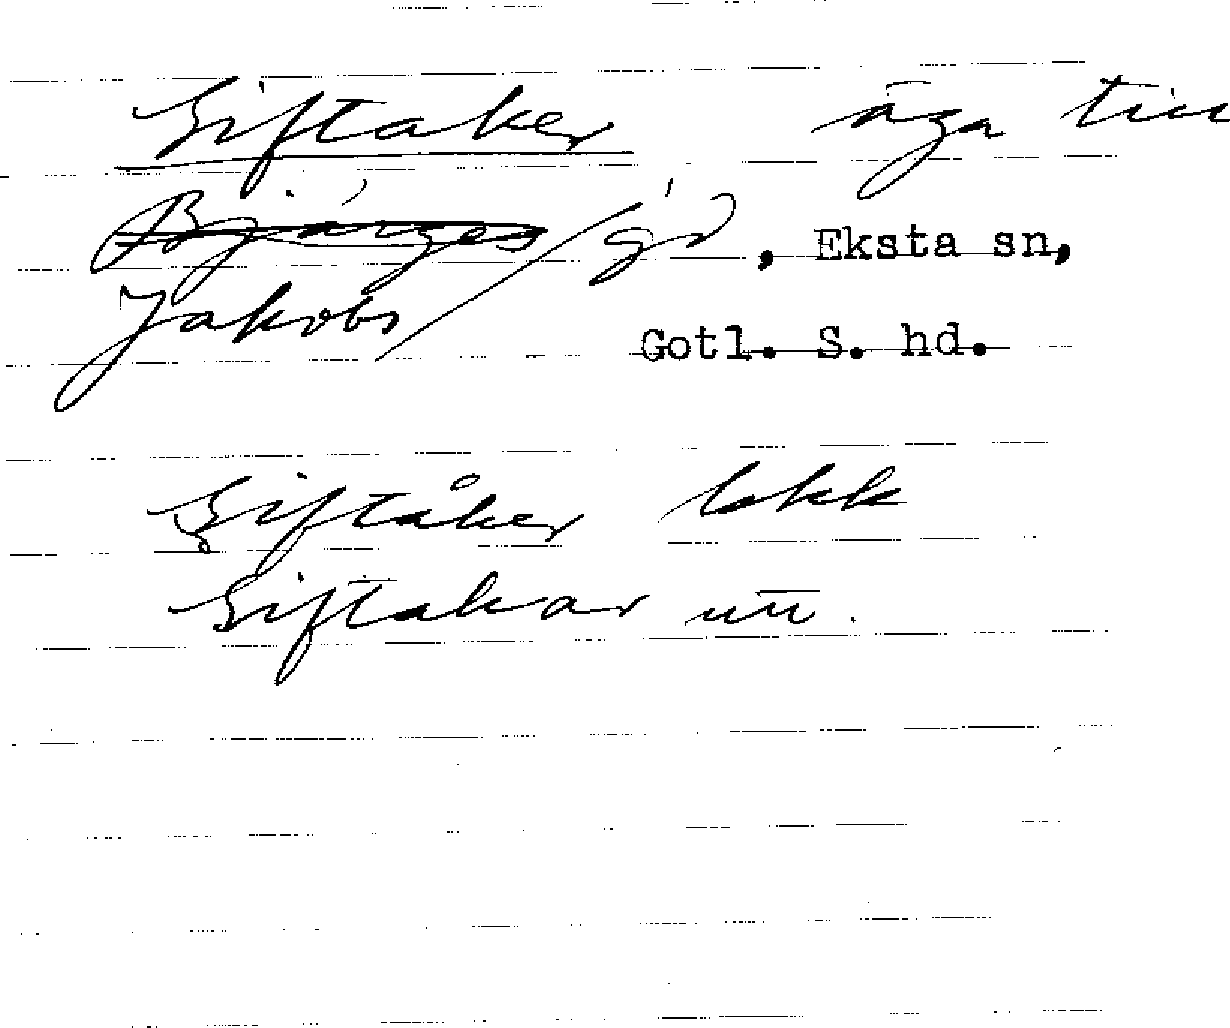 Giftaker äga till
Bjärges / gd, Eksta sn,
Jakobs / Gotl. S. hd.
Giftåker lokk
Giftakar utt.